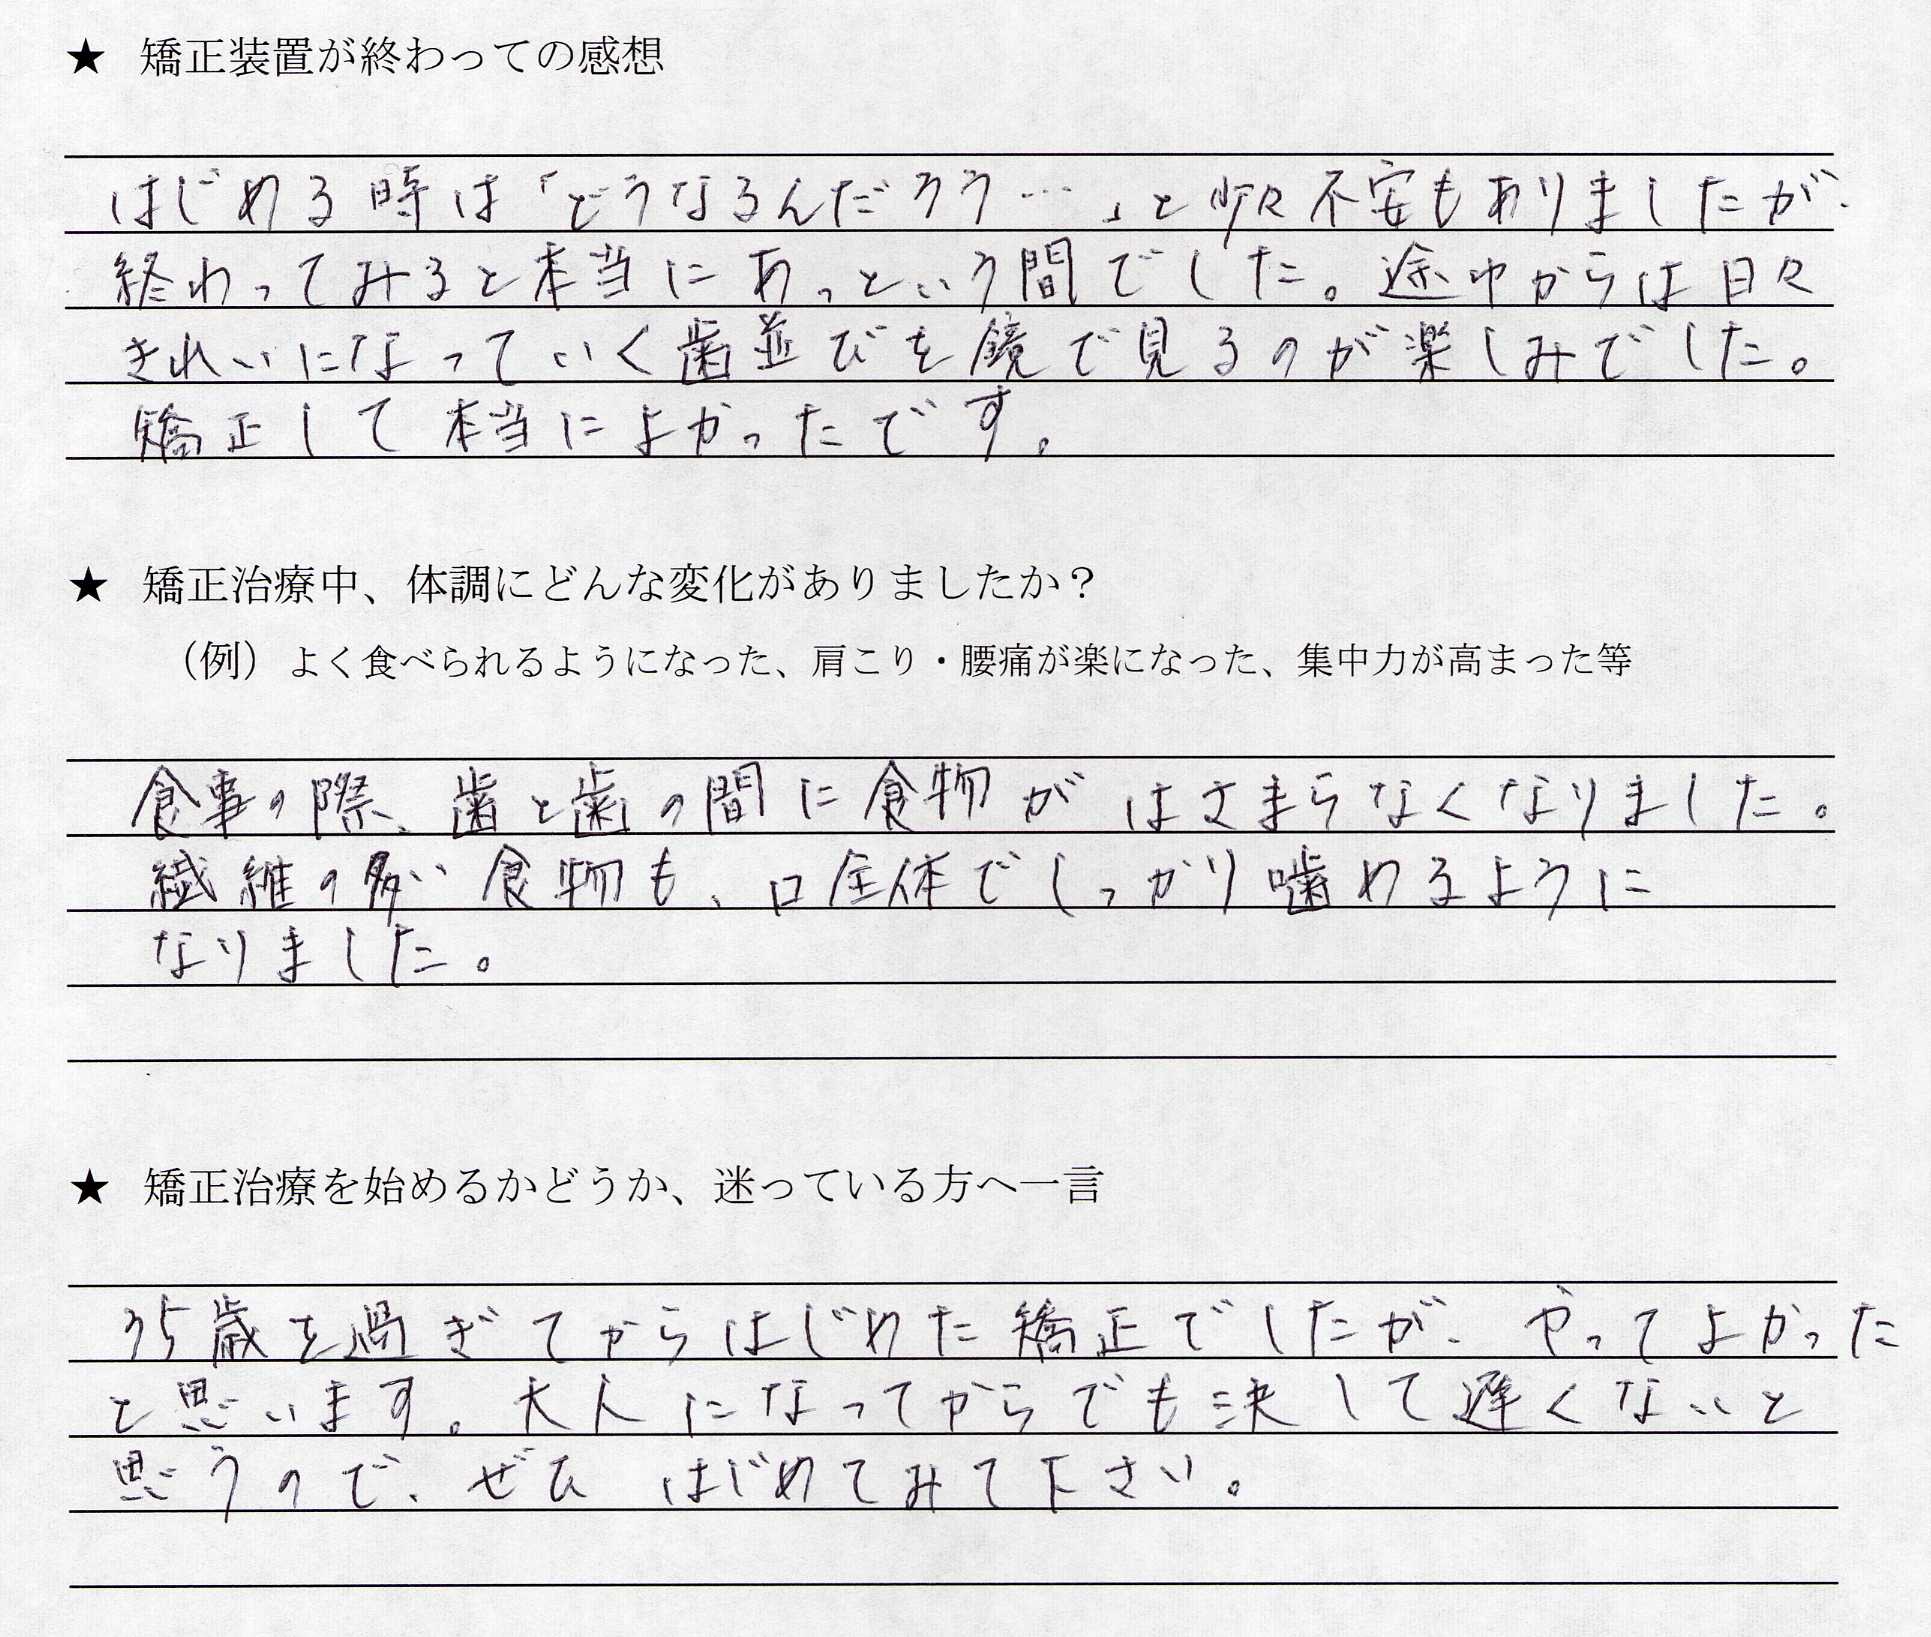 ★ 矯正装置が終わっての感想
はじめる時は「どうなるんだろう…」と少々不安もありましたが、
終わってみると本当にあっという間でした。途中からは日々
きれいになっていく歯並びを鏡で見るのが楽しみでした。
矯正して本当によかったです。
★ 矯正治療中、体調にどんな変化がありましたか？
（例）よく食べられるようになった、肩こり・腰痛が楽になった、集中力が高まった等
食事の際、歯と歯の間に食物がはさまらなくなりました。
繊維の多い食物も、口全体でしっかり噛めるように
なりました。
★ 矯正治療を始めるかどうか、迷っている方へ一言
35歳を過ぎてからはじめた矯正でしたが、やってよかった
と思います。大人になってからでも決して遅くないと
思うので、ぜひ はじめてみて下さい。